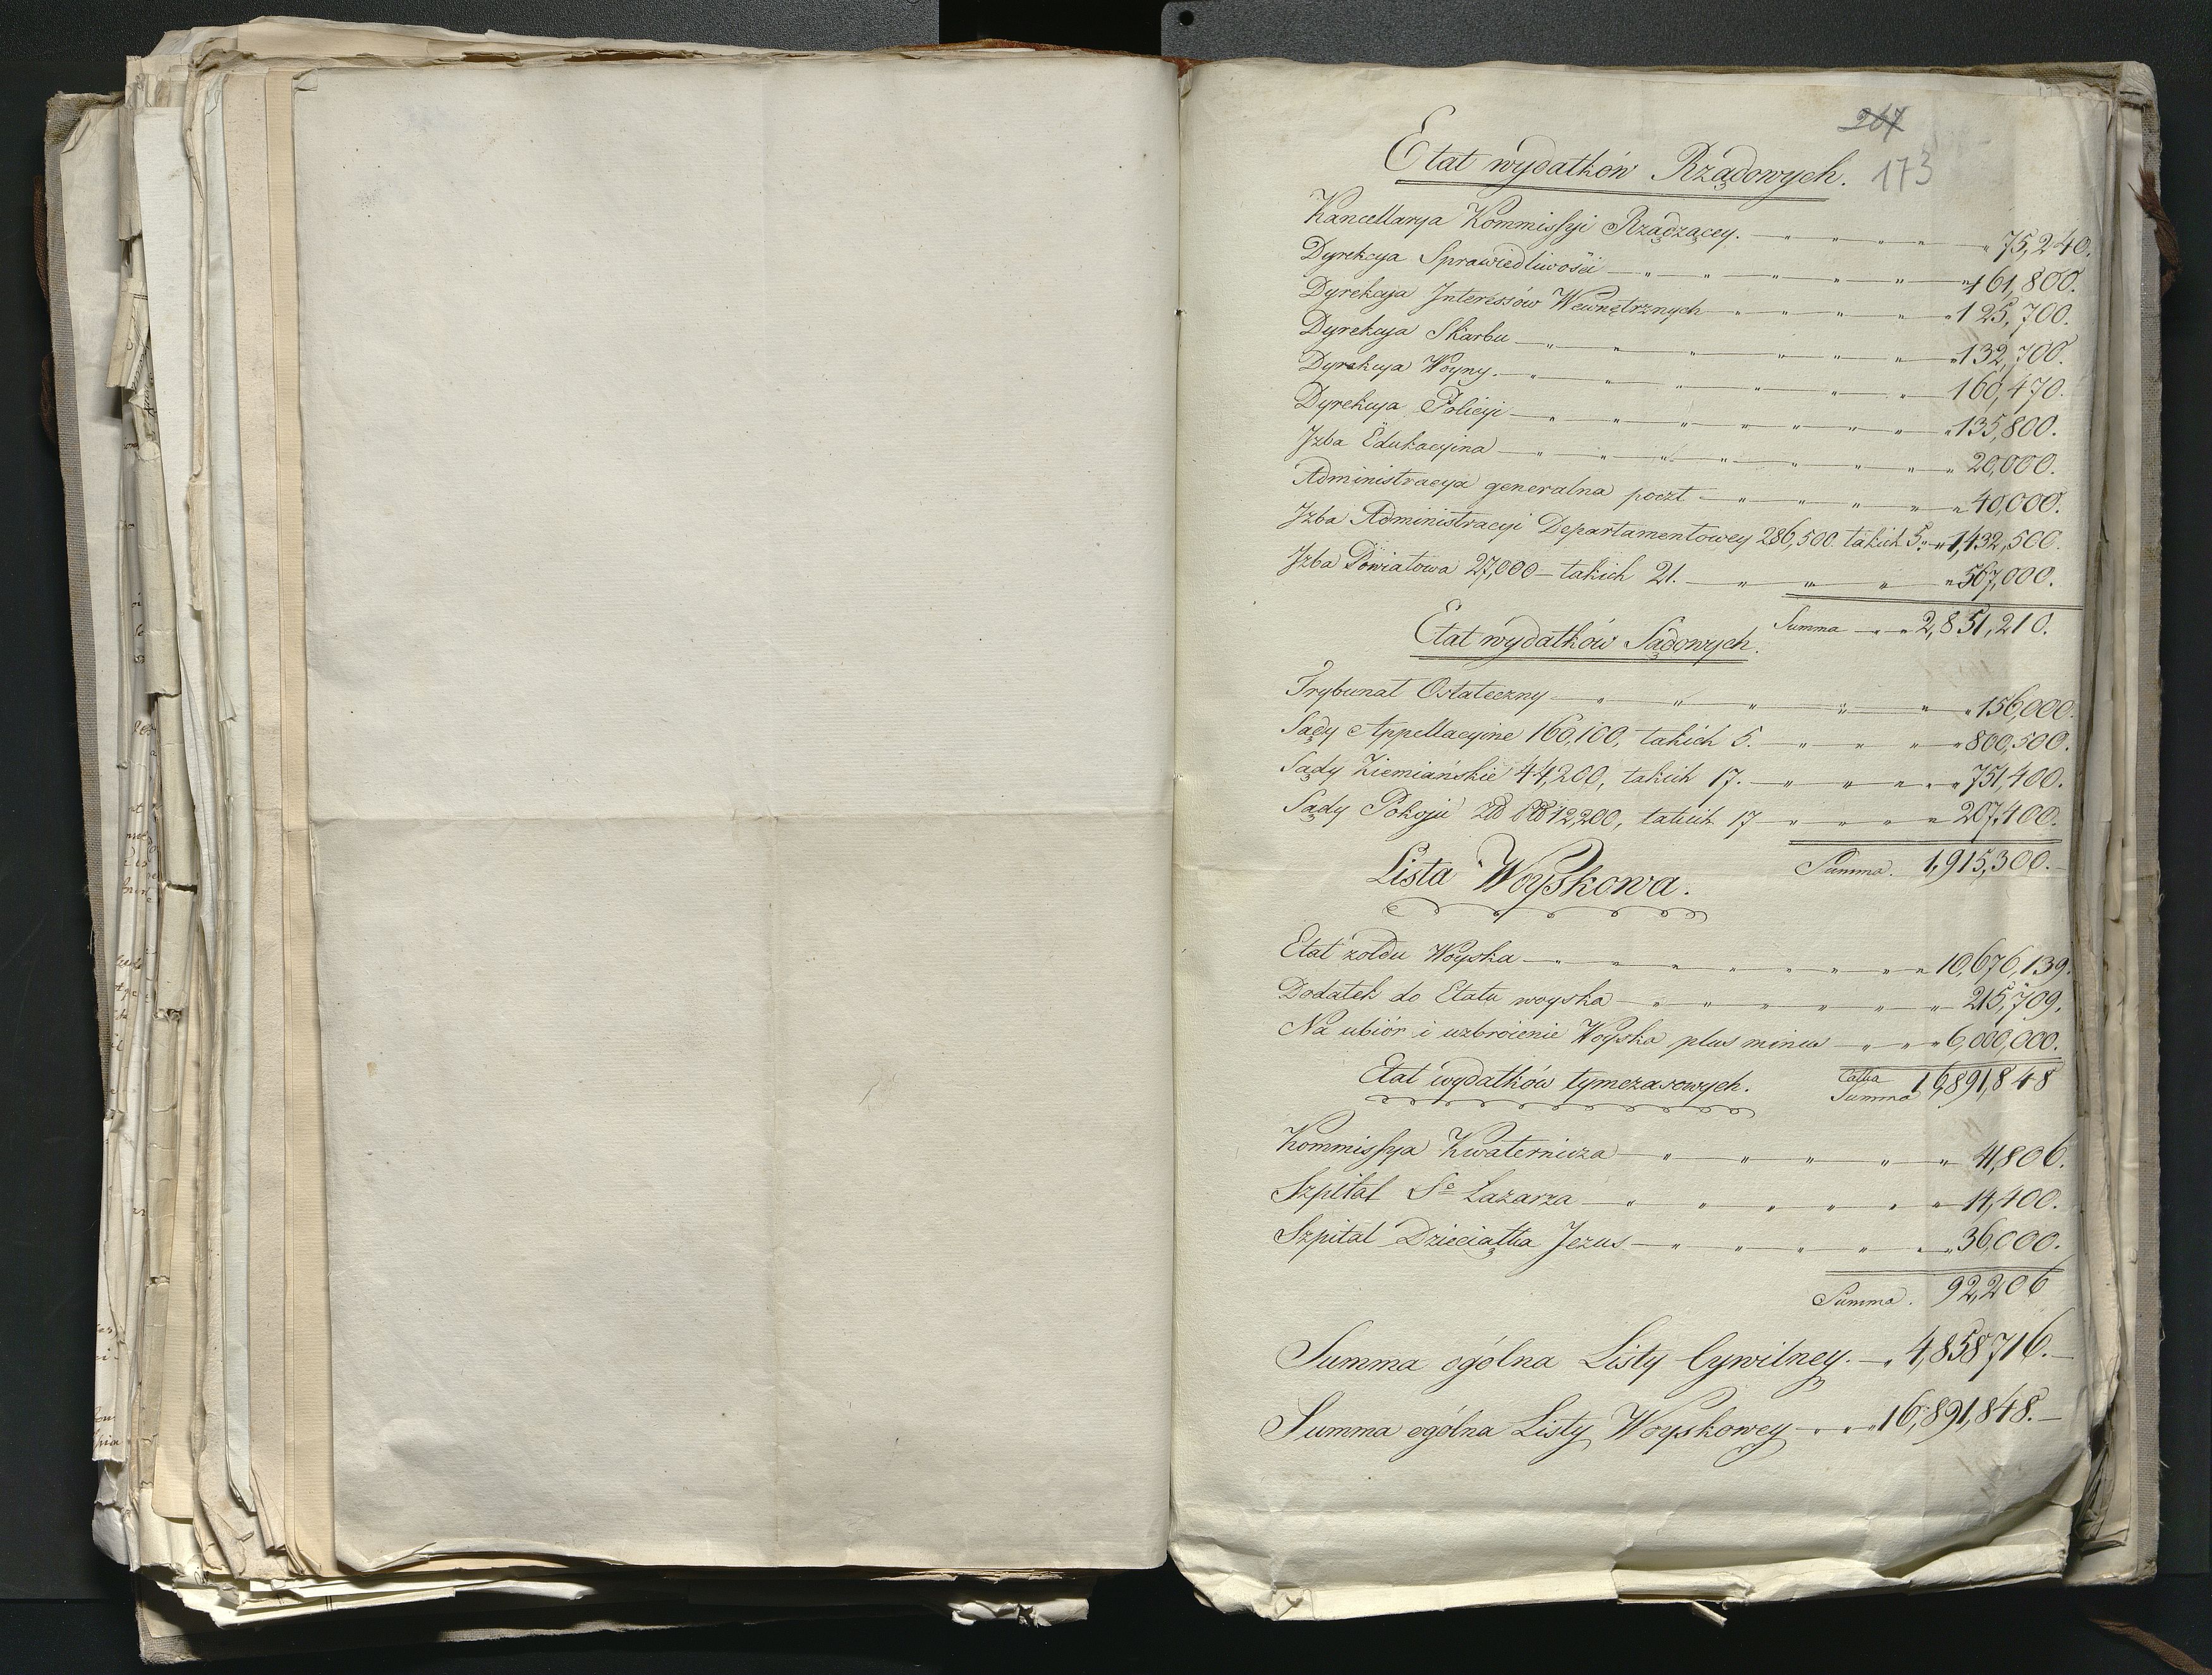 267
Etat wydatków Rządowych. 173
Kancellarya Kommissyi Rządzącey. 75,240.
Dyrekcya Sprawiedliwości 161,800.
Dyrekcya Interessów Wewnętrznych 125,700.
Dyrekcya Skarbu 132,700.
Dyrekcya Woyny. 160,470.
Dyrekcya Policyi 135,800.
Izba Edukacyina 20,000.
Administracya generalna poczt 40,000.
Izba Administracyi Departamentowey 286,500. takich 5. 1,432,500.
Izba Powiatowa 27,000 - takich 21. 567,000.
Summa 2,851,210.
Etat wydatków Sądowych.
Trybunał Ostateczny 156,000.
Sądy Appellacyine 160,100, takich 5. 800,500.
Sądy Ziemiańskie 44,200, takich 17. 751,400.
Sądy Pokoju 12,200, takich 17 207,400.
Summa. 1,915,300.
Lista Woyskowa.
Etat żołdu Woyska 10,676,139.
Dodatek do Etatu woyska 215,709.
Na ubiór i uzbroienie Woyska plus minus 6,000,000.
Całka Summa 16,891,848
Etat wydatków tymczasowych.
Kommissya Kwaternicza 41,806.
Szpital So Lazarza 14,400.
Szpital Dzieciątka Jezus 36,000.
Summa. 92,206
Summa ogólna Listy Cywilney. 4,858716.
Summa ogólna Listy Woyskowey 16,891,848.